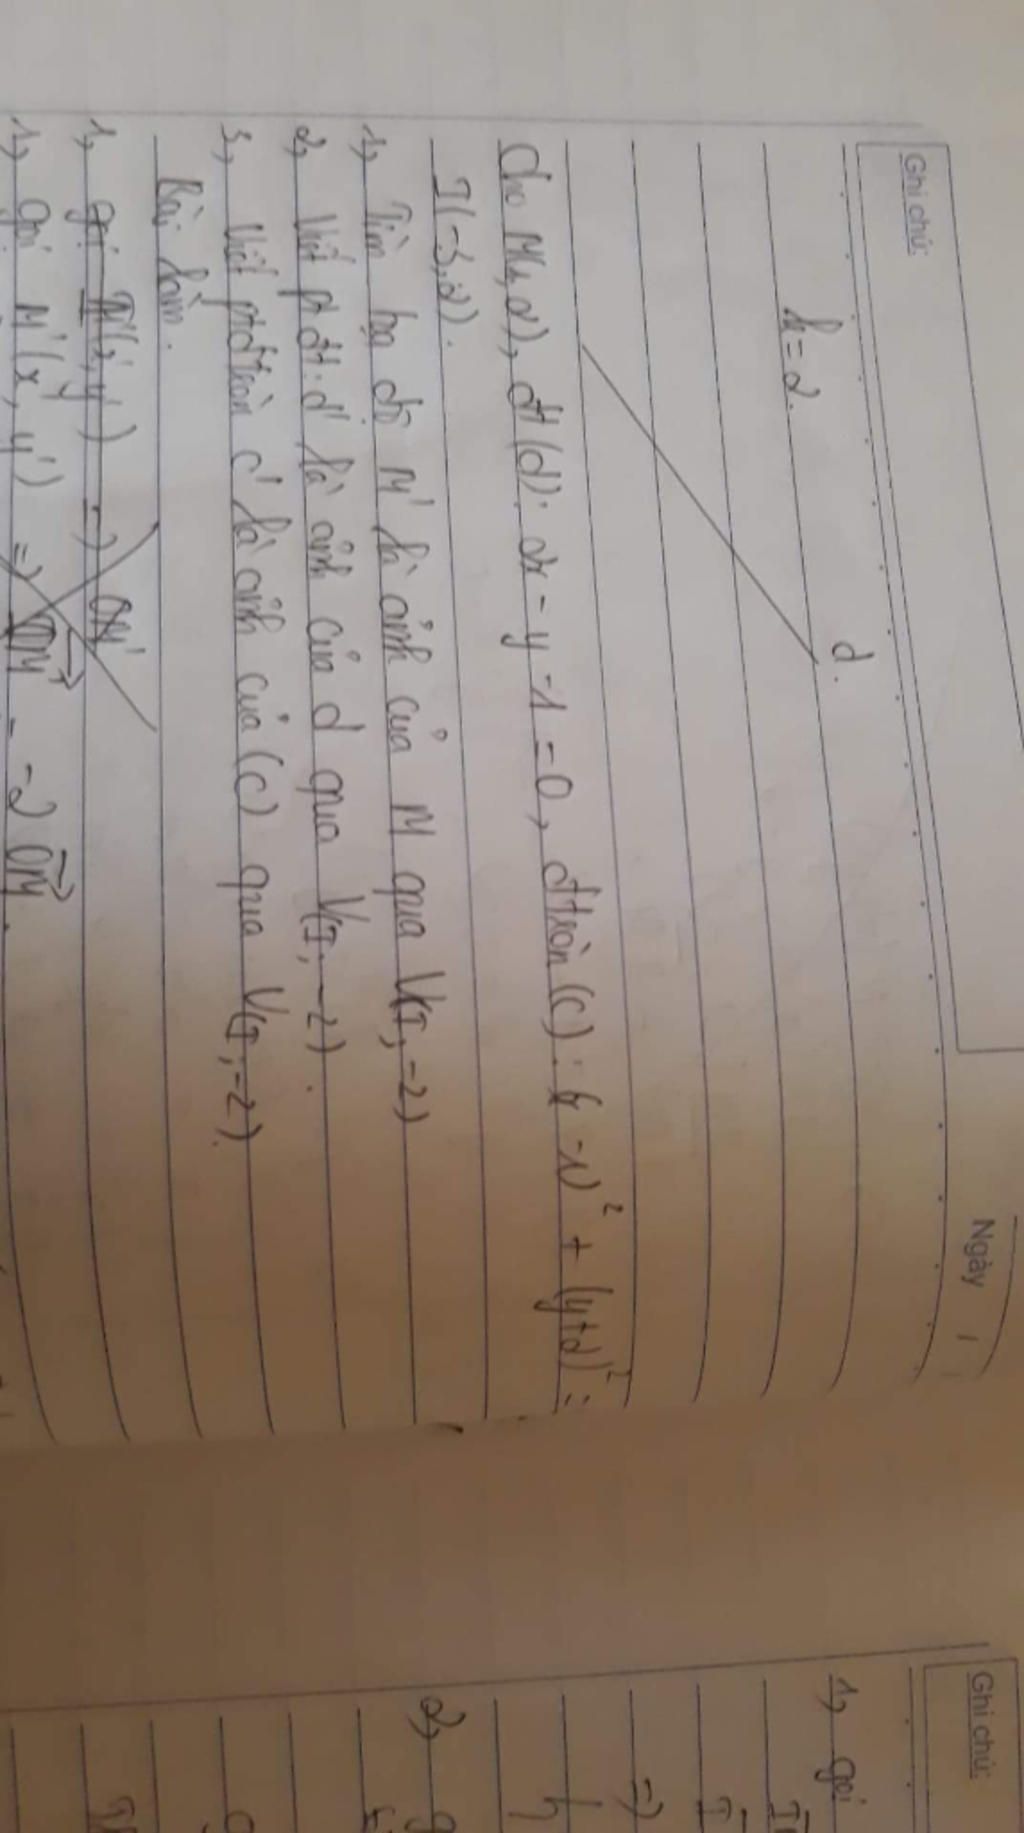 Ghi chú:
Ngày /
d.
k=2.
Cho M(1,2), đt (d): 2x - y - 1 = 0, đtròn (C): (x - 1)² + (y+2)² =
I(-3,2).
1, Tìm tọa độ M' là ảnh của M qua V(I,-2)
2, Viết pt đt: d' là ảnh của d qua V(I,-2).
3, Viết ptđtròn C' là ảnh của (C) qua V(I;-2).
Bài làm.
1, gọi (x', y') => OM'
1, gọi M'(x', y') => OM' = -2 OM.
Ghi chú:
1, gọi
=>
2,